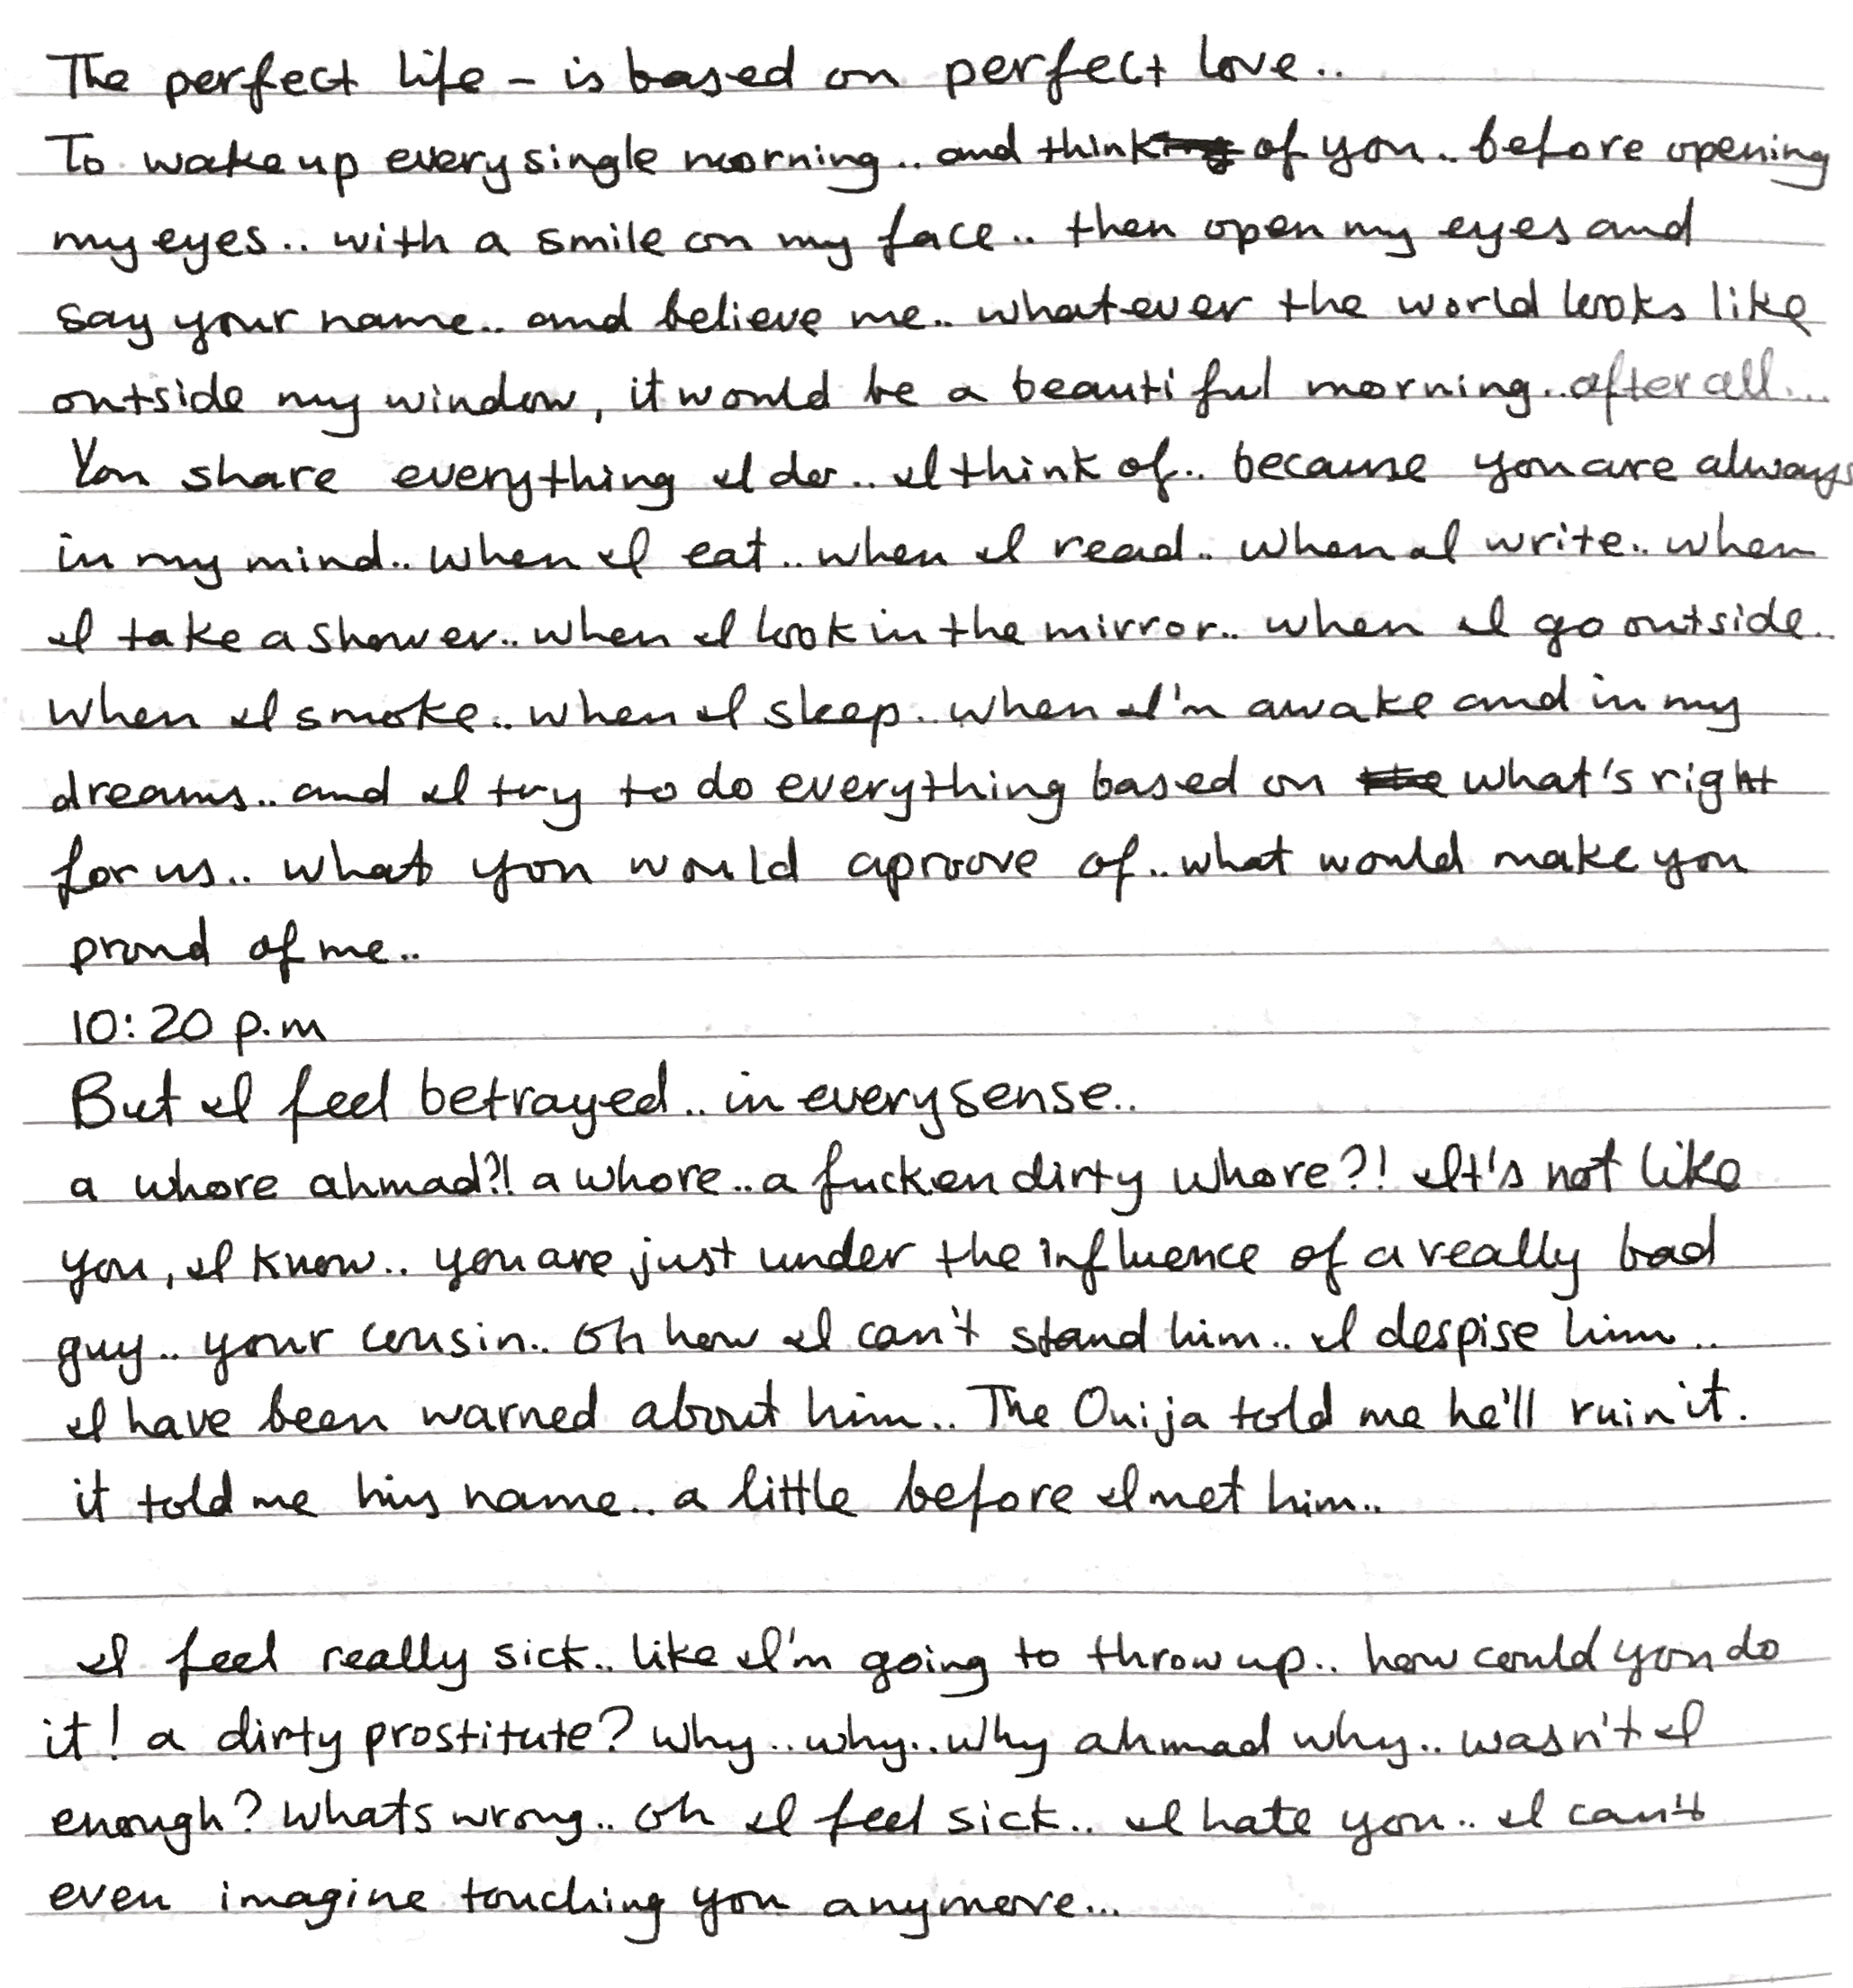 The perfect life - is based on perfect love..
To wake up every single morning.. and think of you.. before opening
my eyes.. with a smile on my face.. then open my eyes and
say your name.. and believe me.. whatever the world looks like
outside my window, it would be a beautiful morning.. after all....
You share everything I do.. I think of.. because you are always
in my mind.. when I eat.. when I read.. when I write.. when
I take a shower.. when I look in the mirror.. when I go outside..
when I smoke.. when I sleep.. when I'm awake and in my
dreams.. and I try to do everything based on what's right
for us.. what you would aproove of.. what would make you
proud of me..
10:20 p.m
But I feel betrayed.. in every sense..
a whore ahmad?! a whore.. a fucken dirty whore?! It's not like
you, I know.. you are just under the influence of a really bad
guy.. your cousin.. oh how I can't stand him.. I despise him..
I have been warned about him.. The Ouija told me he'll ruin it.
it told me his name.. a little before I met him..
I feel really sick.. like I'm going to throw up.. how could you do
it! a dirty prostitute? why.. why.. why ahmad why.. wasn't I
enough? whats wrong.. oh I feel sick.. I hate you.. I can't
even imagine touching you anymore...